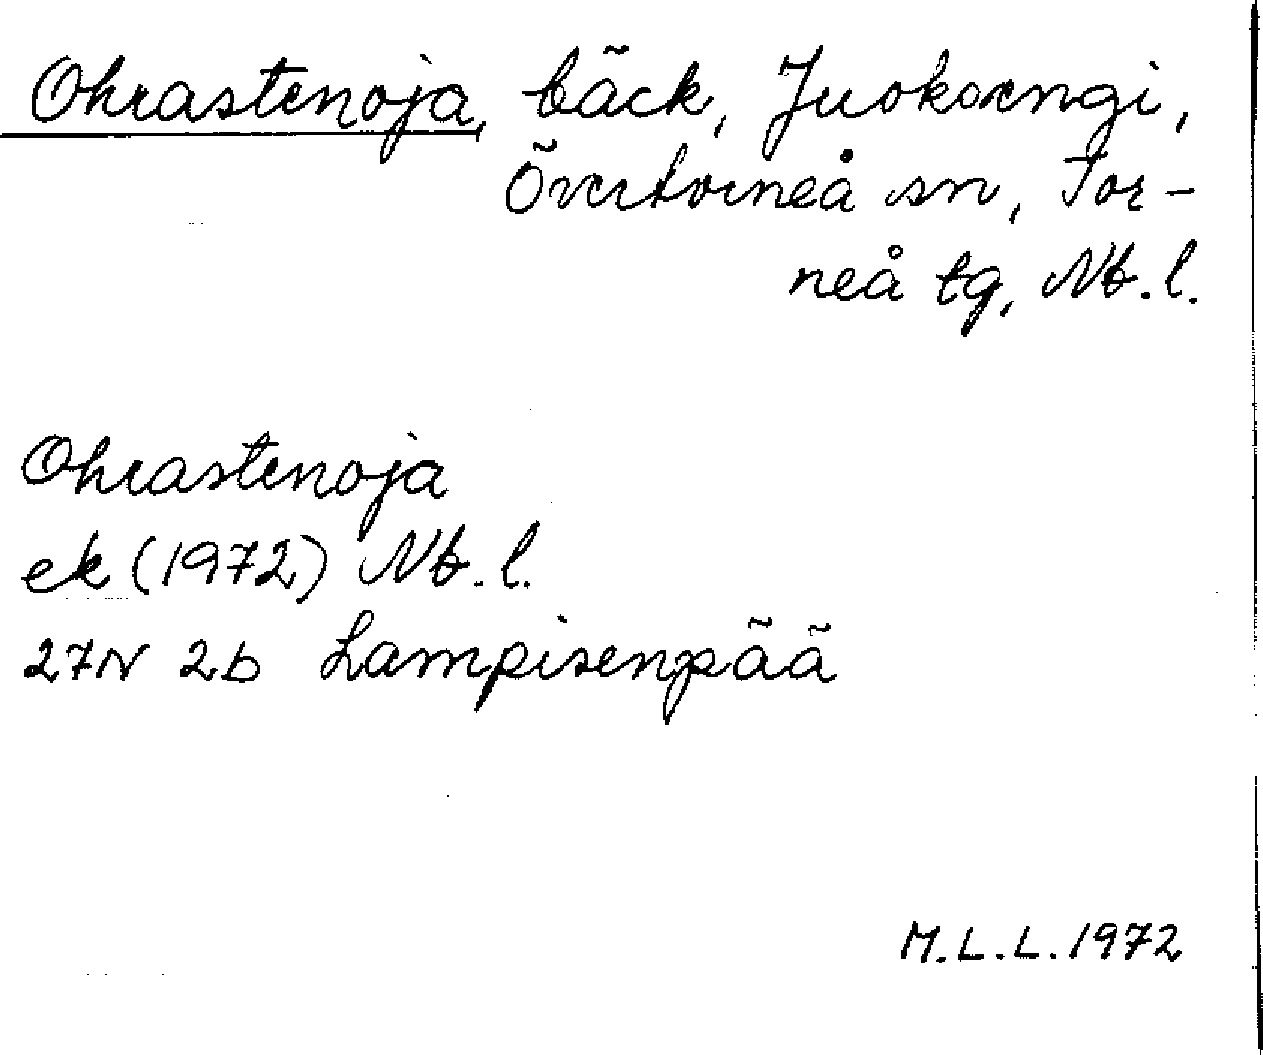 Ohrastenoja, bäck, Juoksengi,
Övertorneå sn, Tor-
neå tg, Nb.l.
Ohrastenoja
ek (1972) Nb.l.
27N 2b Lampisenpää
M.L.L. 1972